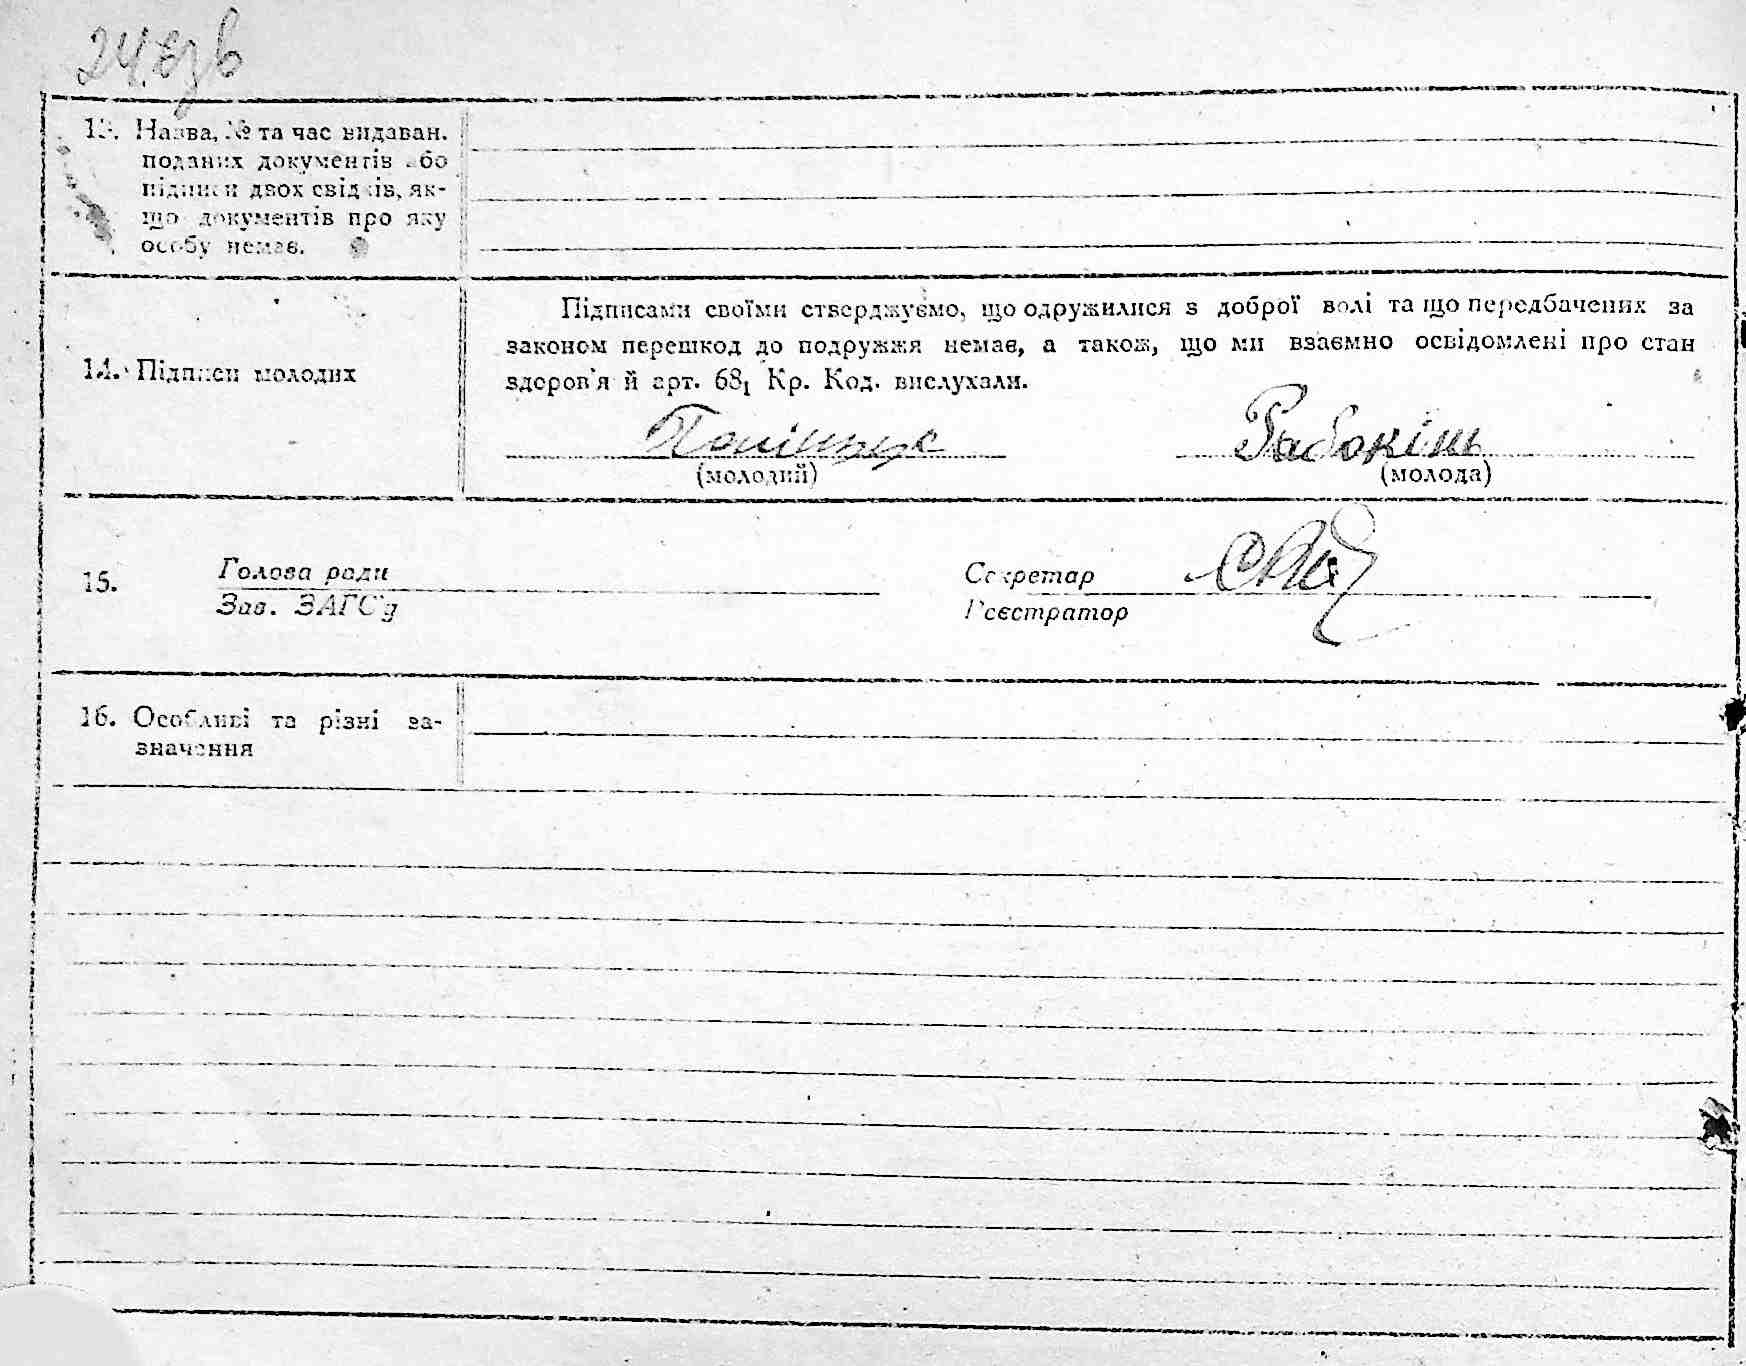 24
13. Назва, № та час видаван.
поданих документів або
підписи двох свідків, як-
що документів про яку
особу немає.
14. Підписи молодих
Підписами своїми стверджуємо, що одружилися з доброї волі та що передбачених за
законом перешкод до подружжя немає, а також, що ми взаємно освідомлені про стан
здоров'я й арт. 68₁ Кр. Код. вислухали.
Поліщук
Рабокінь
(молодий)
(молода)
15.
Голова ради
Зав. ЗАГС'у
Секретар
Реєстратор
16. Особливі та різні за-
значення